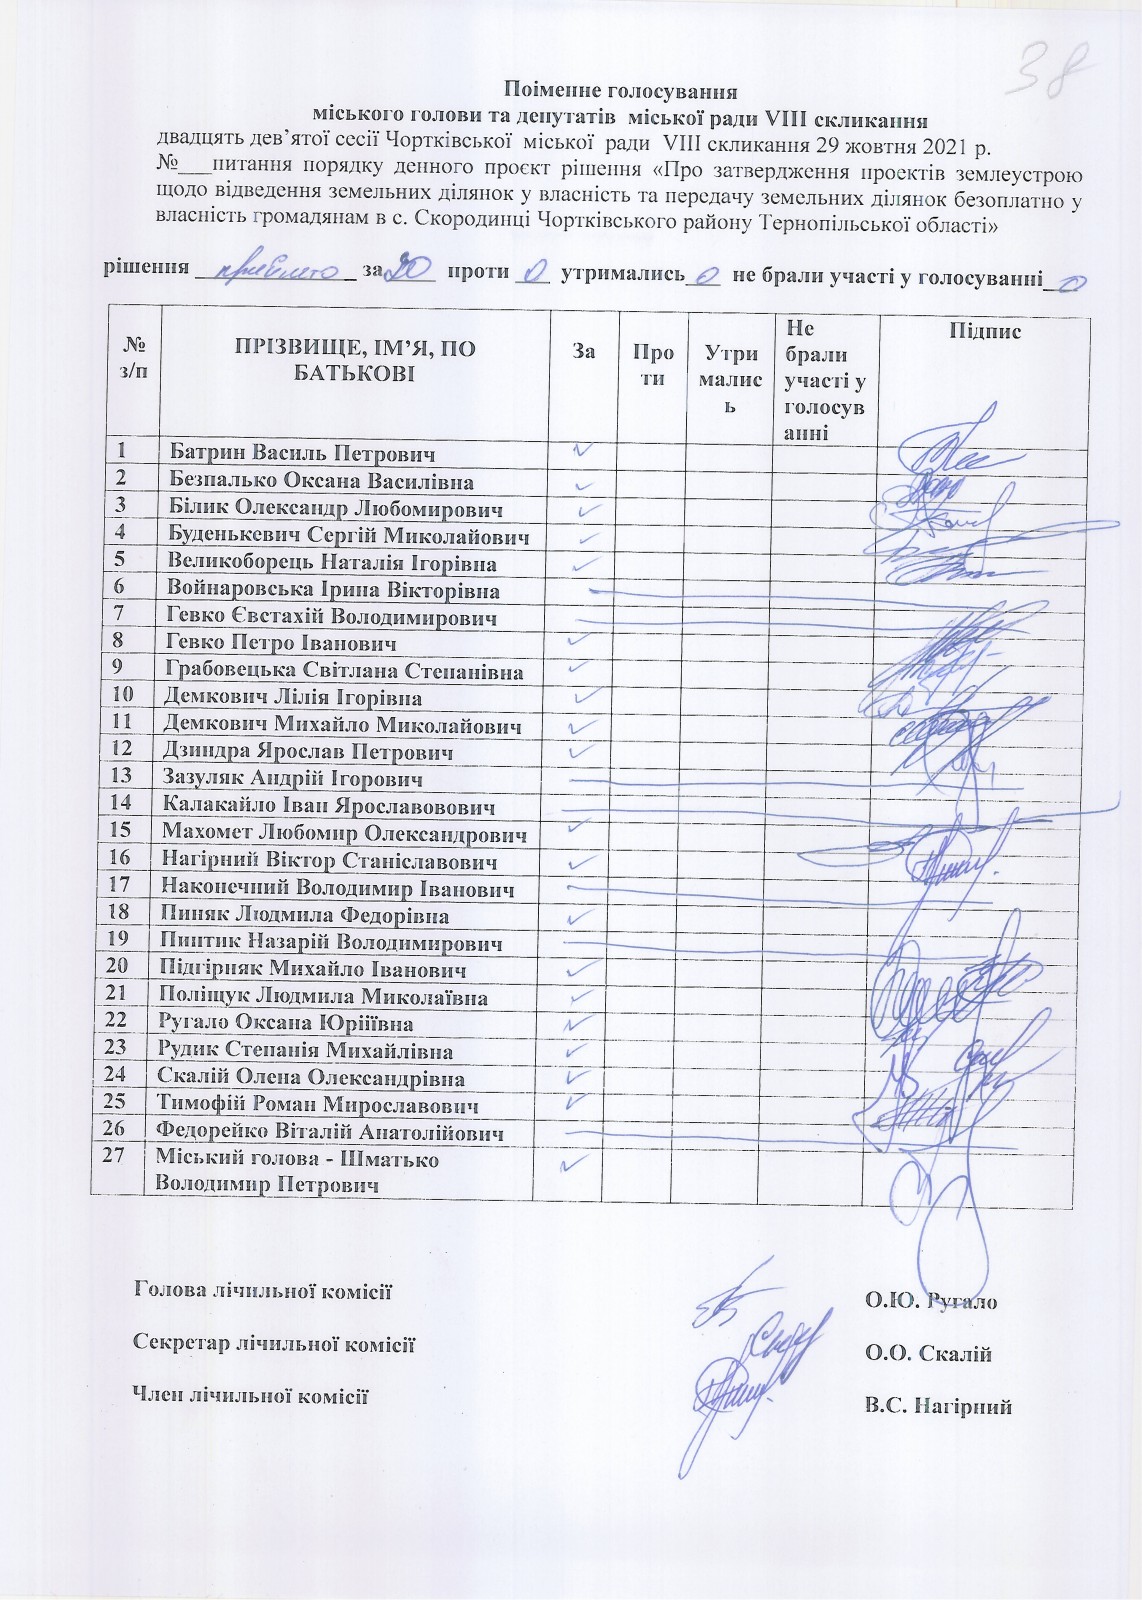 38
Поіменне голосування
міського голови та депутатів міської ради VIII скликання
двадцять дев’ятої сесії Чортківської міської ради VIII скликання 29 жовтня 2021 р.
№___питання порядку денного проєкт рішення «Про затвердження проектів землеустрою
щодо відведення земельних ділянок у власність та передачу земельних ділянок безоплатно у
власність громадянам в с. Скородинці Чортківського району Тернопільської області»
рішення прийнято за 20 проти 0 утримались 0 не брали участі у голосуванні 0
№ з/п ПРІЗВИЩЕ, ІМ’Я, ПО БАТЬКОВІ За Про ти Утри малис ь Не брали участі у голосув анні Підпис
1 Батрин Василь Петрович
2 Безпалько Оксана Василівна
3 Білик Олександр Любомирович
4 Буденькевич Сергій Миколайович
5 Великоборець Наталія Ігорівна
6 Войнаровська Ірина Вікторівна
7 Гевко Євстахій Володимирович
8 Гевко Петро Іванович
9 Грабовецька Світлана Степанівна
10 Демкович Лілія Ігорівна
11 Демкович Михайло Миколайович
12 Дзиндра Ярослав Петрович
13 Зазуляк Андрій Ігорович
14 Калакайло Іван Ярославовович
15 Махомет Любомир Олександрович
16 Нагірний Віктор Станіславович
17 Наконечний Володимир Іванович
18 Пиняк Людмила Федорівна
19 Пинтик Назарій Володимирович
20 Підгірняк Михайло Іванович
21 Поліщук Людмила Миколаївна
22 Ругало Оксана Юріїівна
23 Рудик Степанія Михайлівна
24 Скалій Олена Олександрівна
25 Тимофій Роман Мирославович
26 Федорейко Віталій Анатолійович
27 Міський голова - Шматько
Володимир Петрович
Голова лічильної комісії О.Ю. Ругало
Секретар лічильної комісії О.О. Скалій
Член лічильної комісії В.С. Нагірний